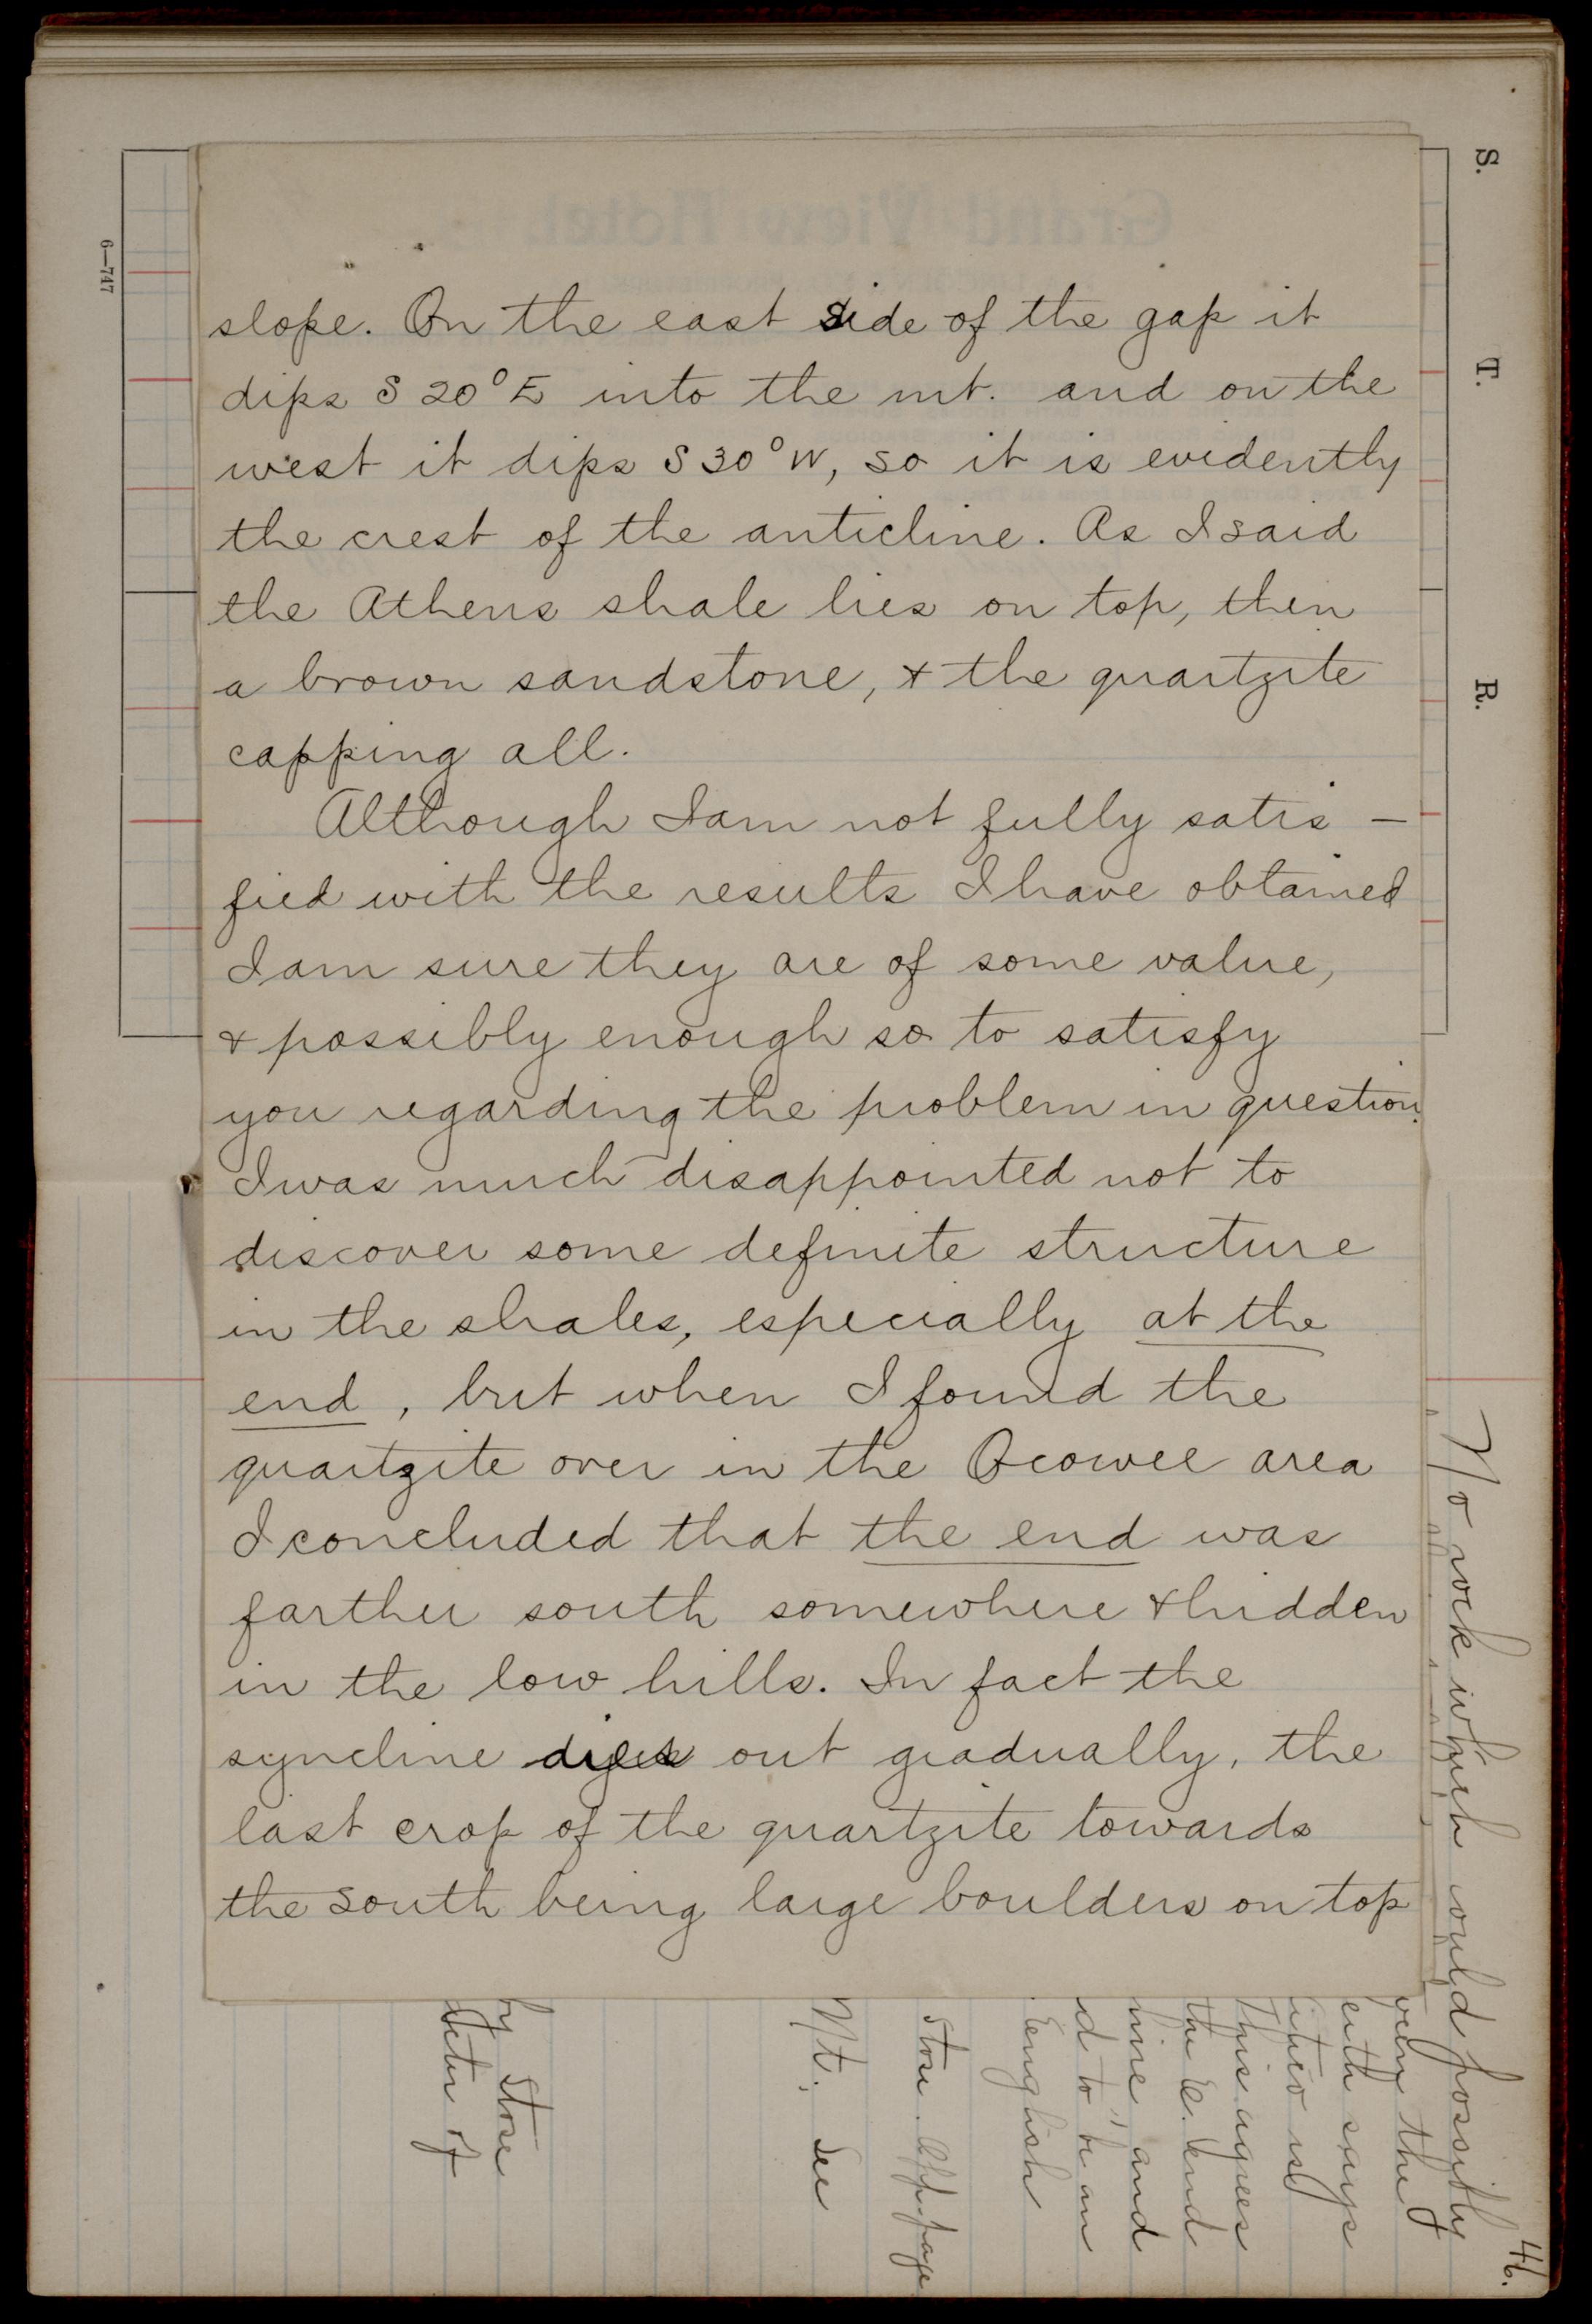 slope. On the east side of the gap it
dips S 20° E into the mt. and on the
west it dips S 30° W, so it is evidently
the crest of the anticline. As I said
the Athens shale lies on top, then
a brown sandstone, & the quartzite
capping all.
Although I am not fully satis -
fied with the results I have obtained
I am sure they are of some value,
& possibly enough so to satisfy
you regarding the problem in question.
I was much disappointed not to
discover some definite structure
in the shales, especially at the
end, but when I found the
quartzite over in the Ocowee area
I concluded that the end was
farther south somewhere & hidden
in the low hills. In fact the
syncline dies out gradually, the
last crop of the quartzite towards
the south being large boulders on top
S. T. R.
6—747
46.
No rock which could possibly
very the
eith says
This agrees
the E. end
and
d to be an
English
Stose. Opp. page
Mt. See
by Stose
letter of